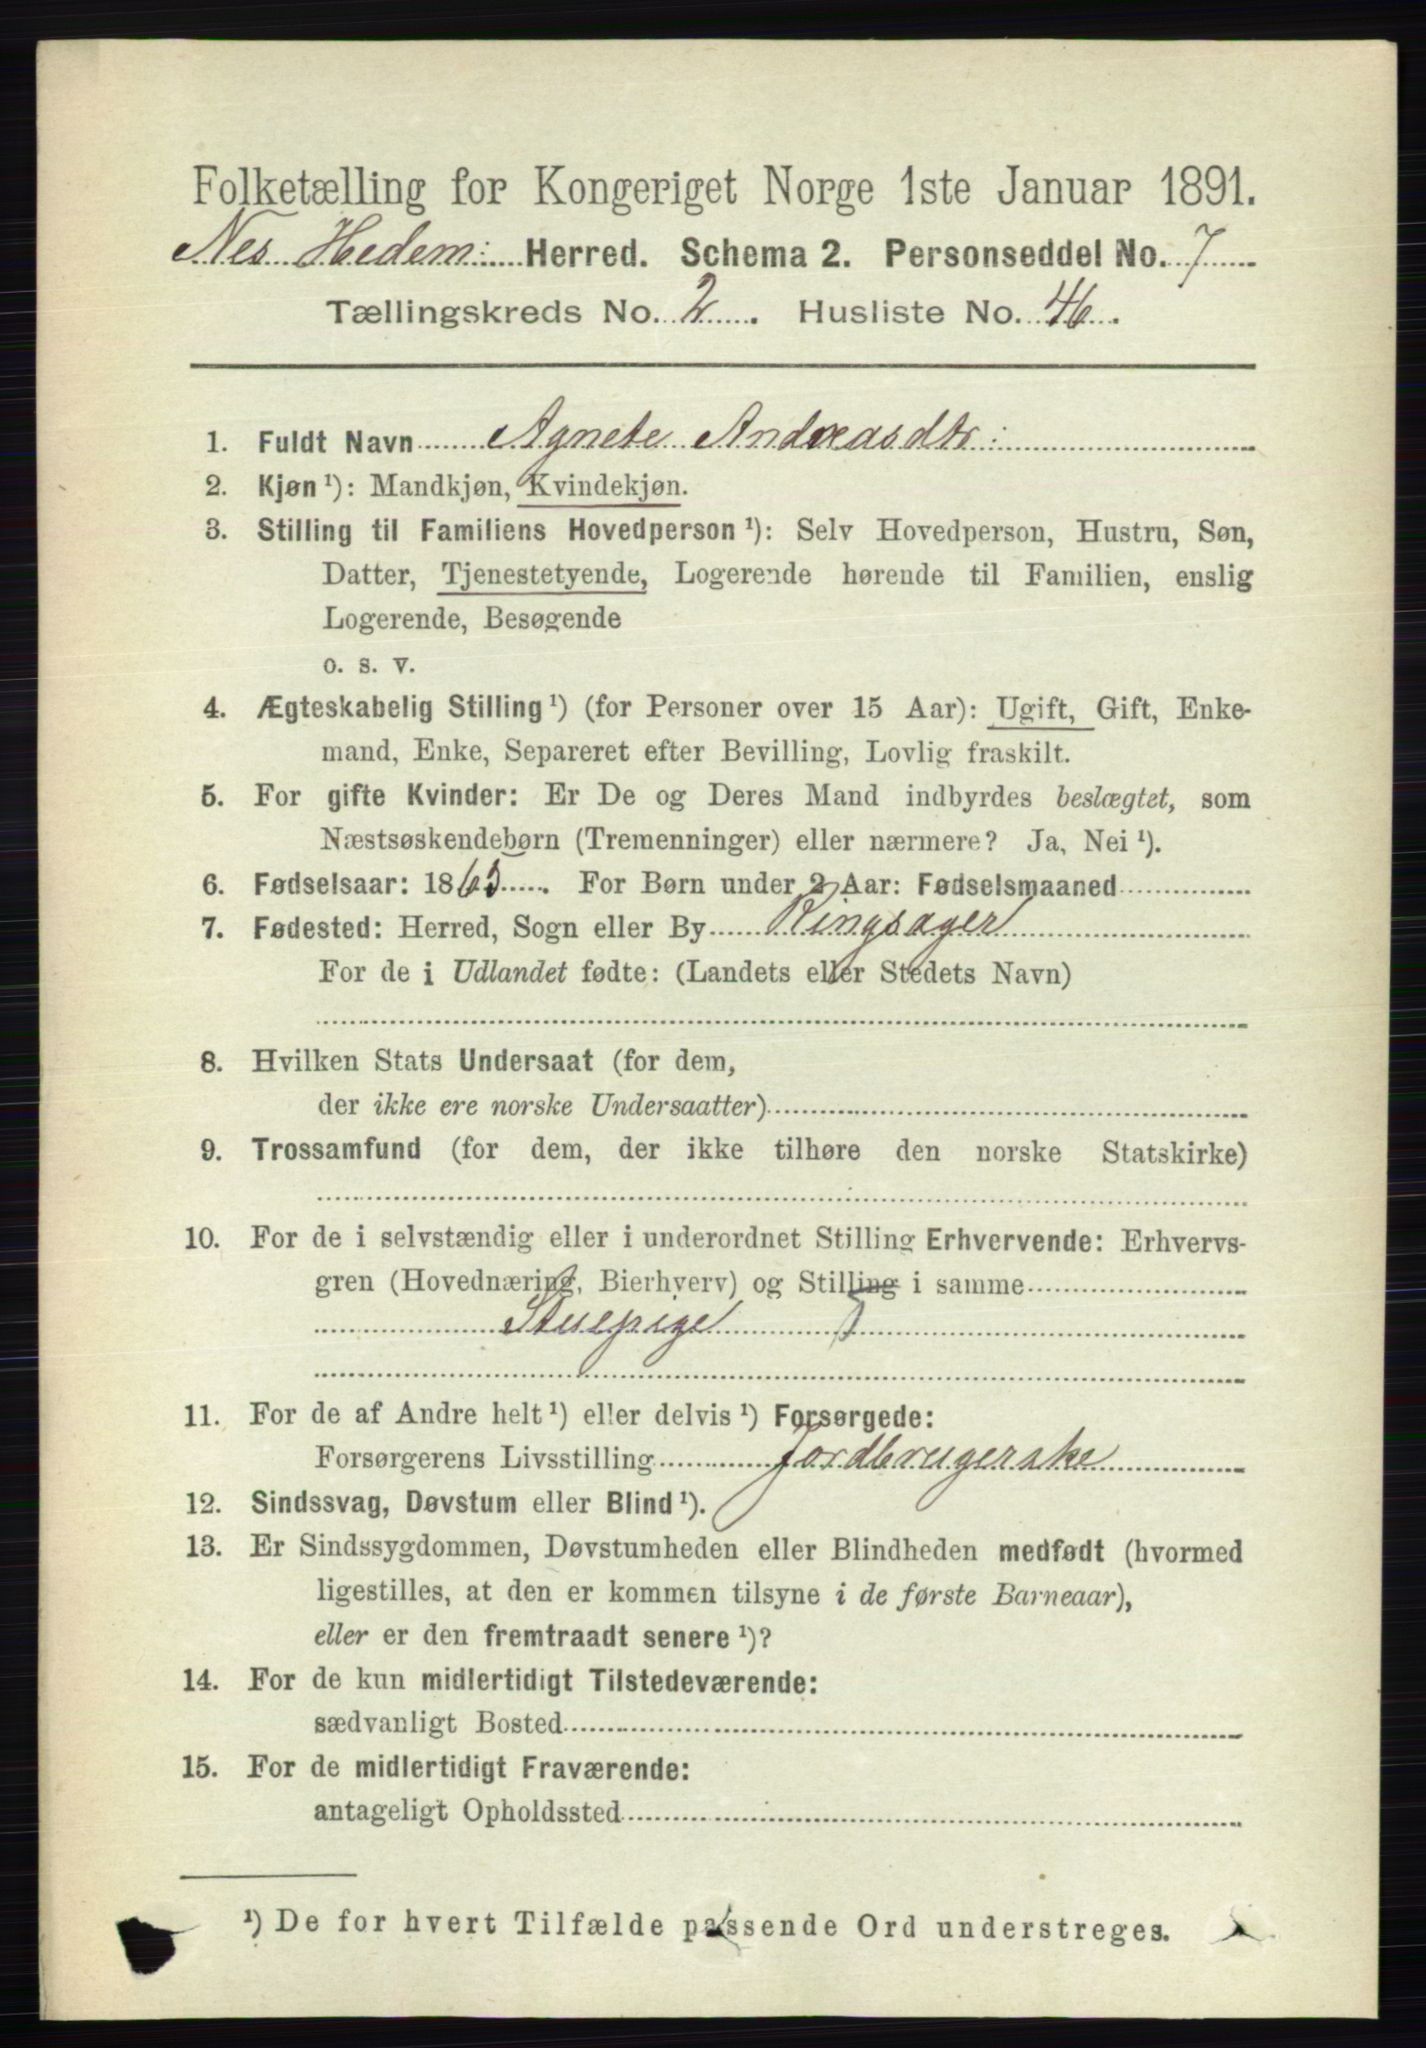 Folketælling for Kongeriget Norge 1ste Januar 1891.
Nes Hedem: Herred. Schema 2. Personseddel No. 7
Tællingskreds No. 2. Husliste No. 46.
1. Fuldt Navn Agnete Andreasdtr:
2. Kjøn ¹): Mandkjøn, Kvindekjøn.
3. Stilling til Familiens Hovedperson ¹): Selv Hovedperson, Hustru, Søn,
Datter, Tjenestetyende, Logerende hørende til Familien, enslig
Logerende, Besøgende
o. s. v.
4. Ægteskabelig Stilling ¹) (for Personer over 15 Aar): Ugift, Gift, Enke-
mand, Enke, Separeret efter Bevilling, Lovlig fraskilt.
5. For gifte Kvinder: Er De og Deres Mand indbyrdes beslægtet, som
Næstsøskendebørn (Tremenninger) eller nærmere? Ja, Nei ¹).
6. Fødselsaar: 1865. For Børn under 2 Aar: Fødselsmaaned
7. Fødested: Herred, Sogn eller By Ringsager
For de i Udlandet fødte: (Landets eller Stedets Navn)
8. Hvilken Stats Undersaat (for dem,
der ikke ere norske Undersaatter)
9. Trossamfund (for dem, der ikke tilhøre den norske Statskirke)
10. For de i selvstændig eller i underordnet Stilling Erhvervende: Erhvervs-
gren (Hovednæring, Bierhverv) og Stilling i samme
Stuepige
11. For de af Andre helt ¹) eller delvis ¹) Forsørgede:
Forsørgerens Livsstilling Jordbrugerske
12. Sindssvag, Døvstum eller Blind ¹).
13. Er Sindssygdommen, Døvstumheden eller Blindheden medfødt (hvormed
ligestilles, at den er kommen tilsyne i de første Barneaar),
eller er den fremtraadt senere ¹)?
14. For de kun midlertidigt Tilstedeværende:
sædvanligt Bosted
15. For de midlertidigt Fraværende:
antageligt Opholdssted
¹) De for hvert Tilfælde passende Ord understreges.